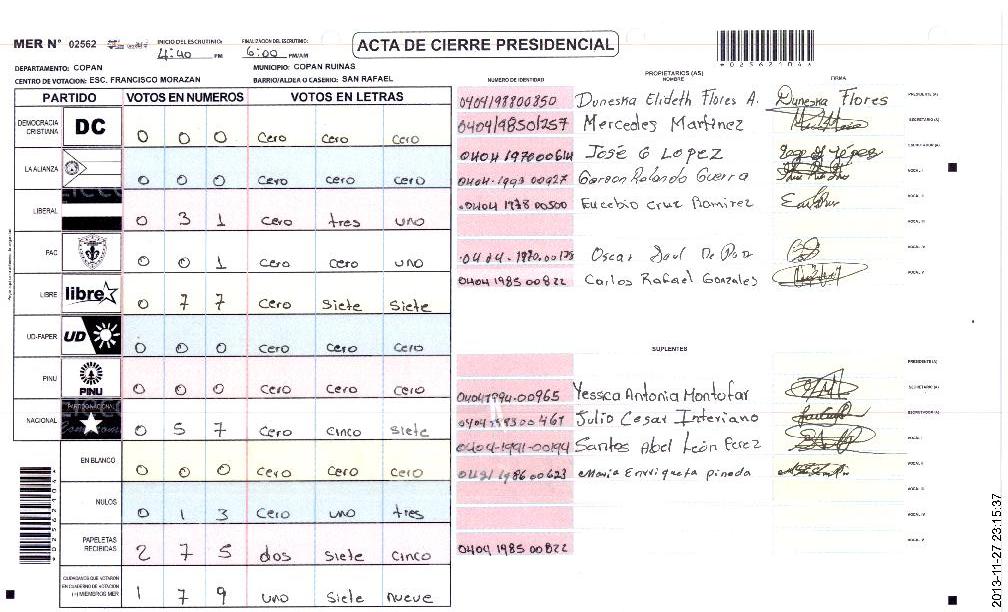 MER N° 02562
INICIO DEL ESCRUTINIO: 4:40 PM
FINALIZACION DEL ESCRUTINIO: 6:00 PM/AM
ACTA DE CIERRE PRESIDENCIAL
*02562104*
DEPARTAMENTO: COPAN MUNICIPIO: COPAN RUINAS
CENTRO DE VOTACION: ESC. FRANCISCO MORAZAN BARRIO/ALDEA O CASERIO: SAN RAFAEL
PARTIDO VOTOS EN NUMEROS VOTOS EN LETRAS
DEMOCRACIA CRISTIANA DC 0 0 0 Cero Cero Cero
LA ALIANZA 0 0 0 Cero Cero Cero
LIBERAL 0 3 1 Cero tres uno
PAC 0 0 1 Cero Cero uno
LIBRE libre 0 7 7 Cero Siete Siete
UD-FAPER UD 0 0 0 Cero Cero Cero
PINU PINU 0 0 0 Cero Cero Cero
NACIONAL 0 5 7 Cero Cinco Siete
EN BLANCO 0 0 0 Cero Cero Cero
NULOS 0 1 3 Cero uno tres
PAPELETAS RECIBIDAS 2 7 5 dos Siete Cinco
CIUDADANOS QUE VOTARON EN CUADERNO DE VOTACION (+) MIEMBROS MER 1 7 9 uno Siete nueve
PROPIETARIOS (AS)
NUMERO DE IDENTIDAD NOMBRE FIRMA
0404198800850 Duneska Elideth Flores A. Duneska Flores PRESIDENTE (A)
0404198501257 Mercedes Martinez SECRETARIO (A)
0404 197000614 José G Lopez ESCRUTADOR (A)
0404-1993 00927 Gerson Rolando Guerra VOCAL I
0404 1978 00500 Eucebio Cruz Ramirez VOCAL II
VOCAL III
Oscar Saul De Paz VOCAL IV
0404 1985 00822 Carlos Rafael Gonzales VOCAL V
SUPLENTES
PRESIDENTE (A)
04041994-00965 Yessica Antonia Montofar SECRETARIO (A)
Julio Cesar Interiano ESCRUTADOR (A)
0404-1991-00194 Santos Abel León Perez VOCAL I
1986 00623 Maria Enriqueta pineda VOCAL II
VOCAL III
VOCAL IV
0404 1985 00822 VOCAL V
*02562104*
2013-11-27 23:15:37